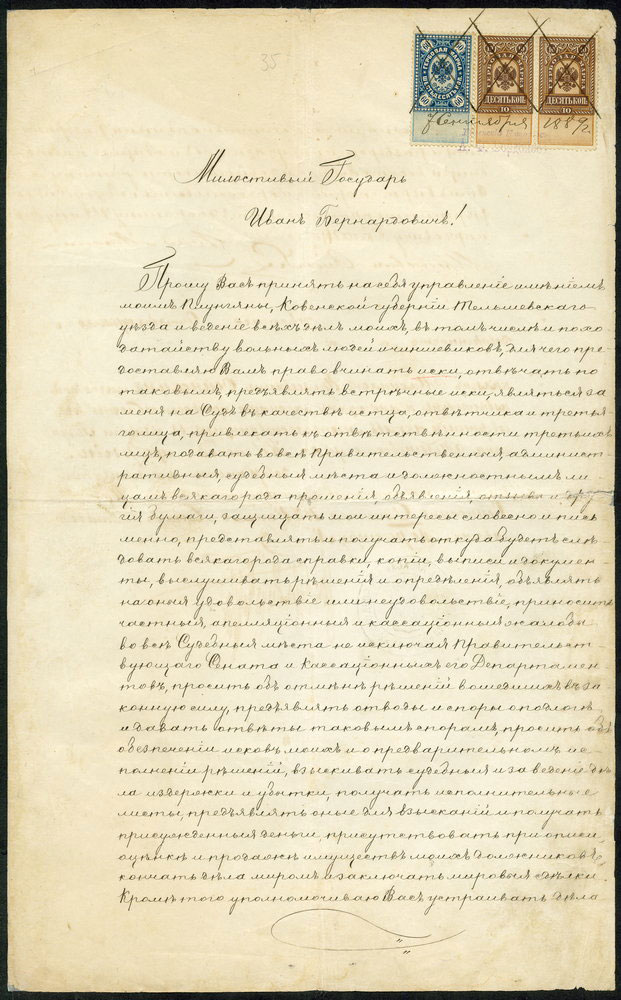 35
60 60
ГЕРБОВАЯ МАРКА
60 60
ДЕСЯТЬ КОП.
10
ДЕСЯТЬ КОП.
10
7 Сентября 1882
Милостивый Государь
Иванъ Бернардовичъ!
Прошу Васъ принять на себя управленіе имѣніемъ
моимъ Плунгяны, Ковенской губерніи Тельшевскаго
уѣзда и веденіе всѣхъ дѣлъ моихъ, въ томъ числѣ и по хо
датайству вольныхъ людей и чиншевиковъ, для чего пре
доставляю Вамъ право вчинать иски, отвѣчать по
таковымъ, предъявлять встрѣчные иски, являться за
меня на Судъ въ качествѣ истца, отвѣтчика и третья
го лица, привлекать къ отвѣтственности третьихъ
лицъ, подавать во всѣ Правительственныя, админист
ративныя, судебныя мѣста и должностнымъ ли
цамъ всякаго рода прошенія, объявленія, отзывы и дру
гія бумаги, защищать мои интересы словесно и пись
менно, представлять и получать откуда будетъ слѣ
довать всякаго рода справки, копіи, выписи и докумен
ты, выслушивать рѣшенія и опредѣленія, объявлять
на оныя удовольствіе или неудовольствіе, приносить
частныя, апелляціонныя и кассаціонныя жалобы
во всѣ Судебныя мѣста не исключая Правительст
вующаго Сената и Кассаціонныхъ его Департамен
товъ, просить объ отмѣнѣ рѣшеній вошедшихъ въ за
конную силу, предъявлять отводы и споры о подлогѣ
и давать отвѣты таковымъ спорамъ, просить объ
обезпеченіи исковъ моихъ и о предварительномъ ис
полненіи рѣшеній, взыскивать судебныя и за веденіе дѣ
ла издержки и убытки, получать исполнительные
листы, предъявлять оные для взысканій и получать
присужденныя деньги, присутствовать при описи,
оцѣнкѣ и продажѣ имуществъ моихъ должниковъ,
кончать дѣла миромъ и заключать мировыя сдѣлки.
Кромѣ того уполномочиваю Васъ устраивать дѣла